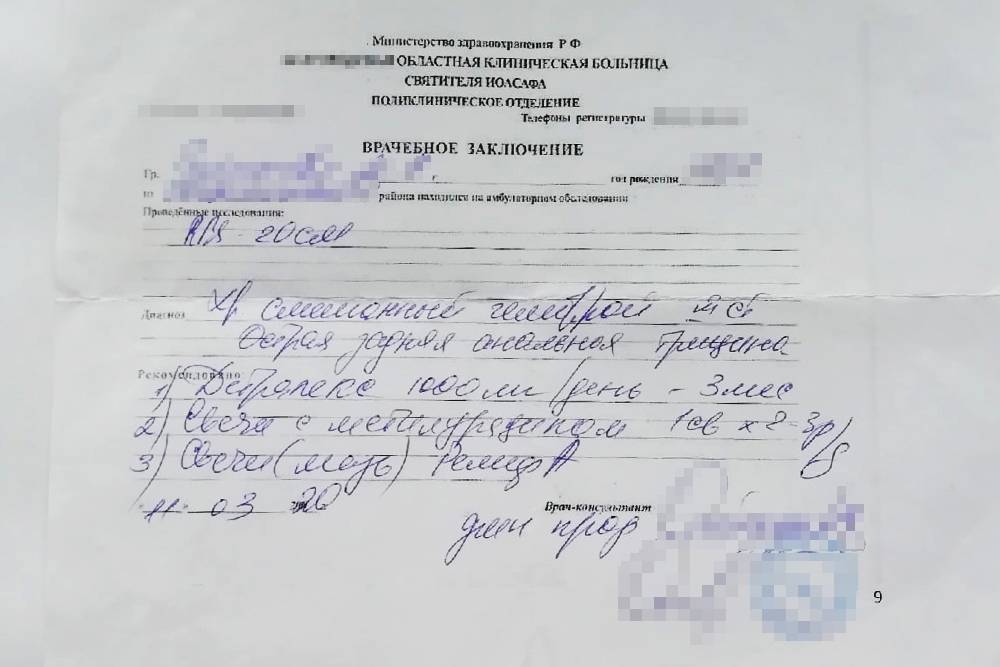 Министерство здравоохранения Р Ф
ОБЛАСТНАЯ КЛИНИЧЕСКАЯ БОЛЬНИЦА
СВЯТИТЕЛЯ ИОАСАФА
ПОЛИКЛИНИЧЕСКОЕ ОТДЕЛЕНИЕ
Телефоны регистратуры
ВРАЧЕБНОЕ ЗАКЛЮЧЕНИЕ
Гр. год рождения
района находился на амбулаторном обследовании
Проведённые исследования:
20 см
Диагноз Хр смешанный геморрой
Острая задняя анальная трещина
Рекомендовано:
1) Детралекс 1000 /день - 3 мес
2) Свечи с метилурацилом 1 св х 2-3 р/
3) Свечи (мазь) Релиф А
11. 03 2020
Врач-консультант
9